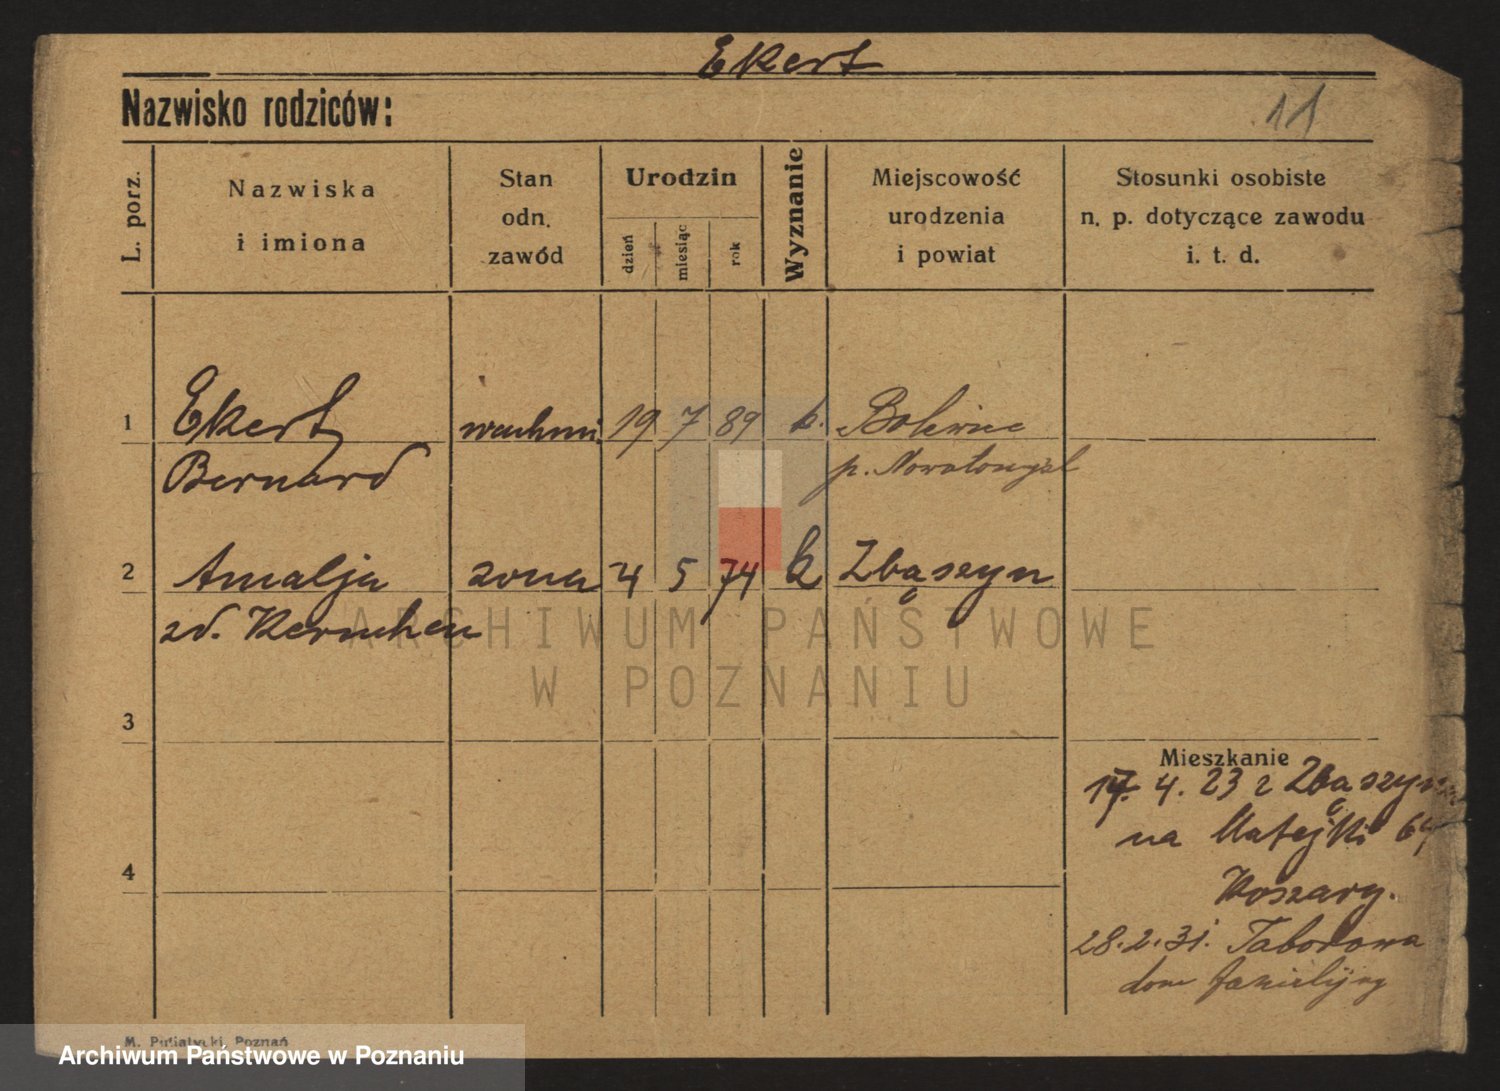 Ekert
Nazwisko rodziców:
11
L. porz.
Nazwiska
i imiona
Stan
odn.
zawód
Urodzin
dzień
miesiąc
rok
Wyznanie
Miejscowość
urodzenia
i powiat
Stosunki osobiste
n. p. dotyczące zawodu
i. t. d.
1 Ekert wachmi. 19 7 89 k. Bolewice
Bernard p. Nowotomyśl
2 Amalja zona 4 5 74 k Zbąszyn
zd.
ARCHIWUM PAŃSTWOWE
W POZNANIU
3
Mieszkanie
17. 4. 23 z Zbąszyn
na Matejki 64
4
Koszary.
28.2.31. Taborowa
dom familijny
M. Putiatycki, Poznań
Archiwum Państwowe w Poznaniu